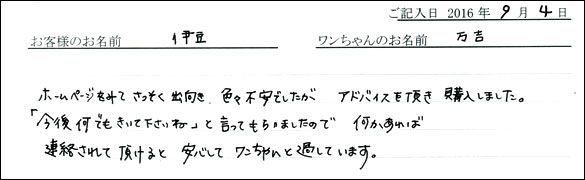 ご記入日 2016 年 9 月 4 日
お客様のお名前 伊豆 ワンちゃんのお名前 万吉
ホームページをみて さっそく出向き、色々不安でしたが アドバイスを頂き 購入しました。
「今後何でもきいて下さいね」と言ってもらいましたので 何かあれば
連絡されて頂けると 安心して ワンちゃんと過しています。